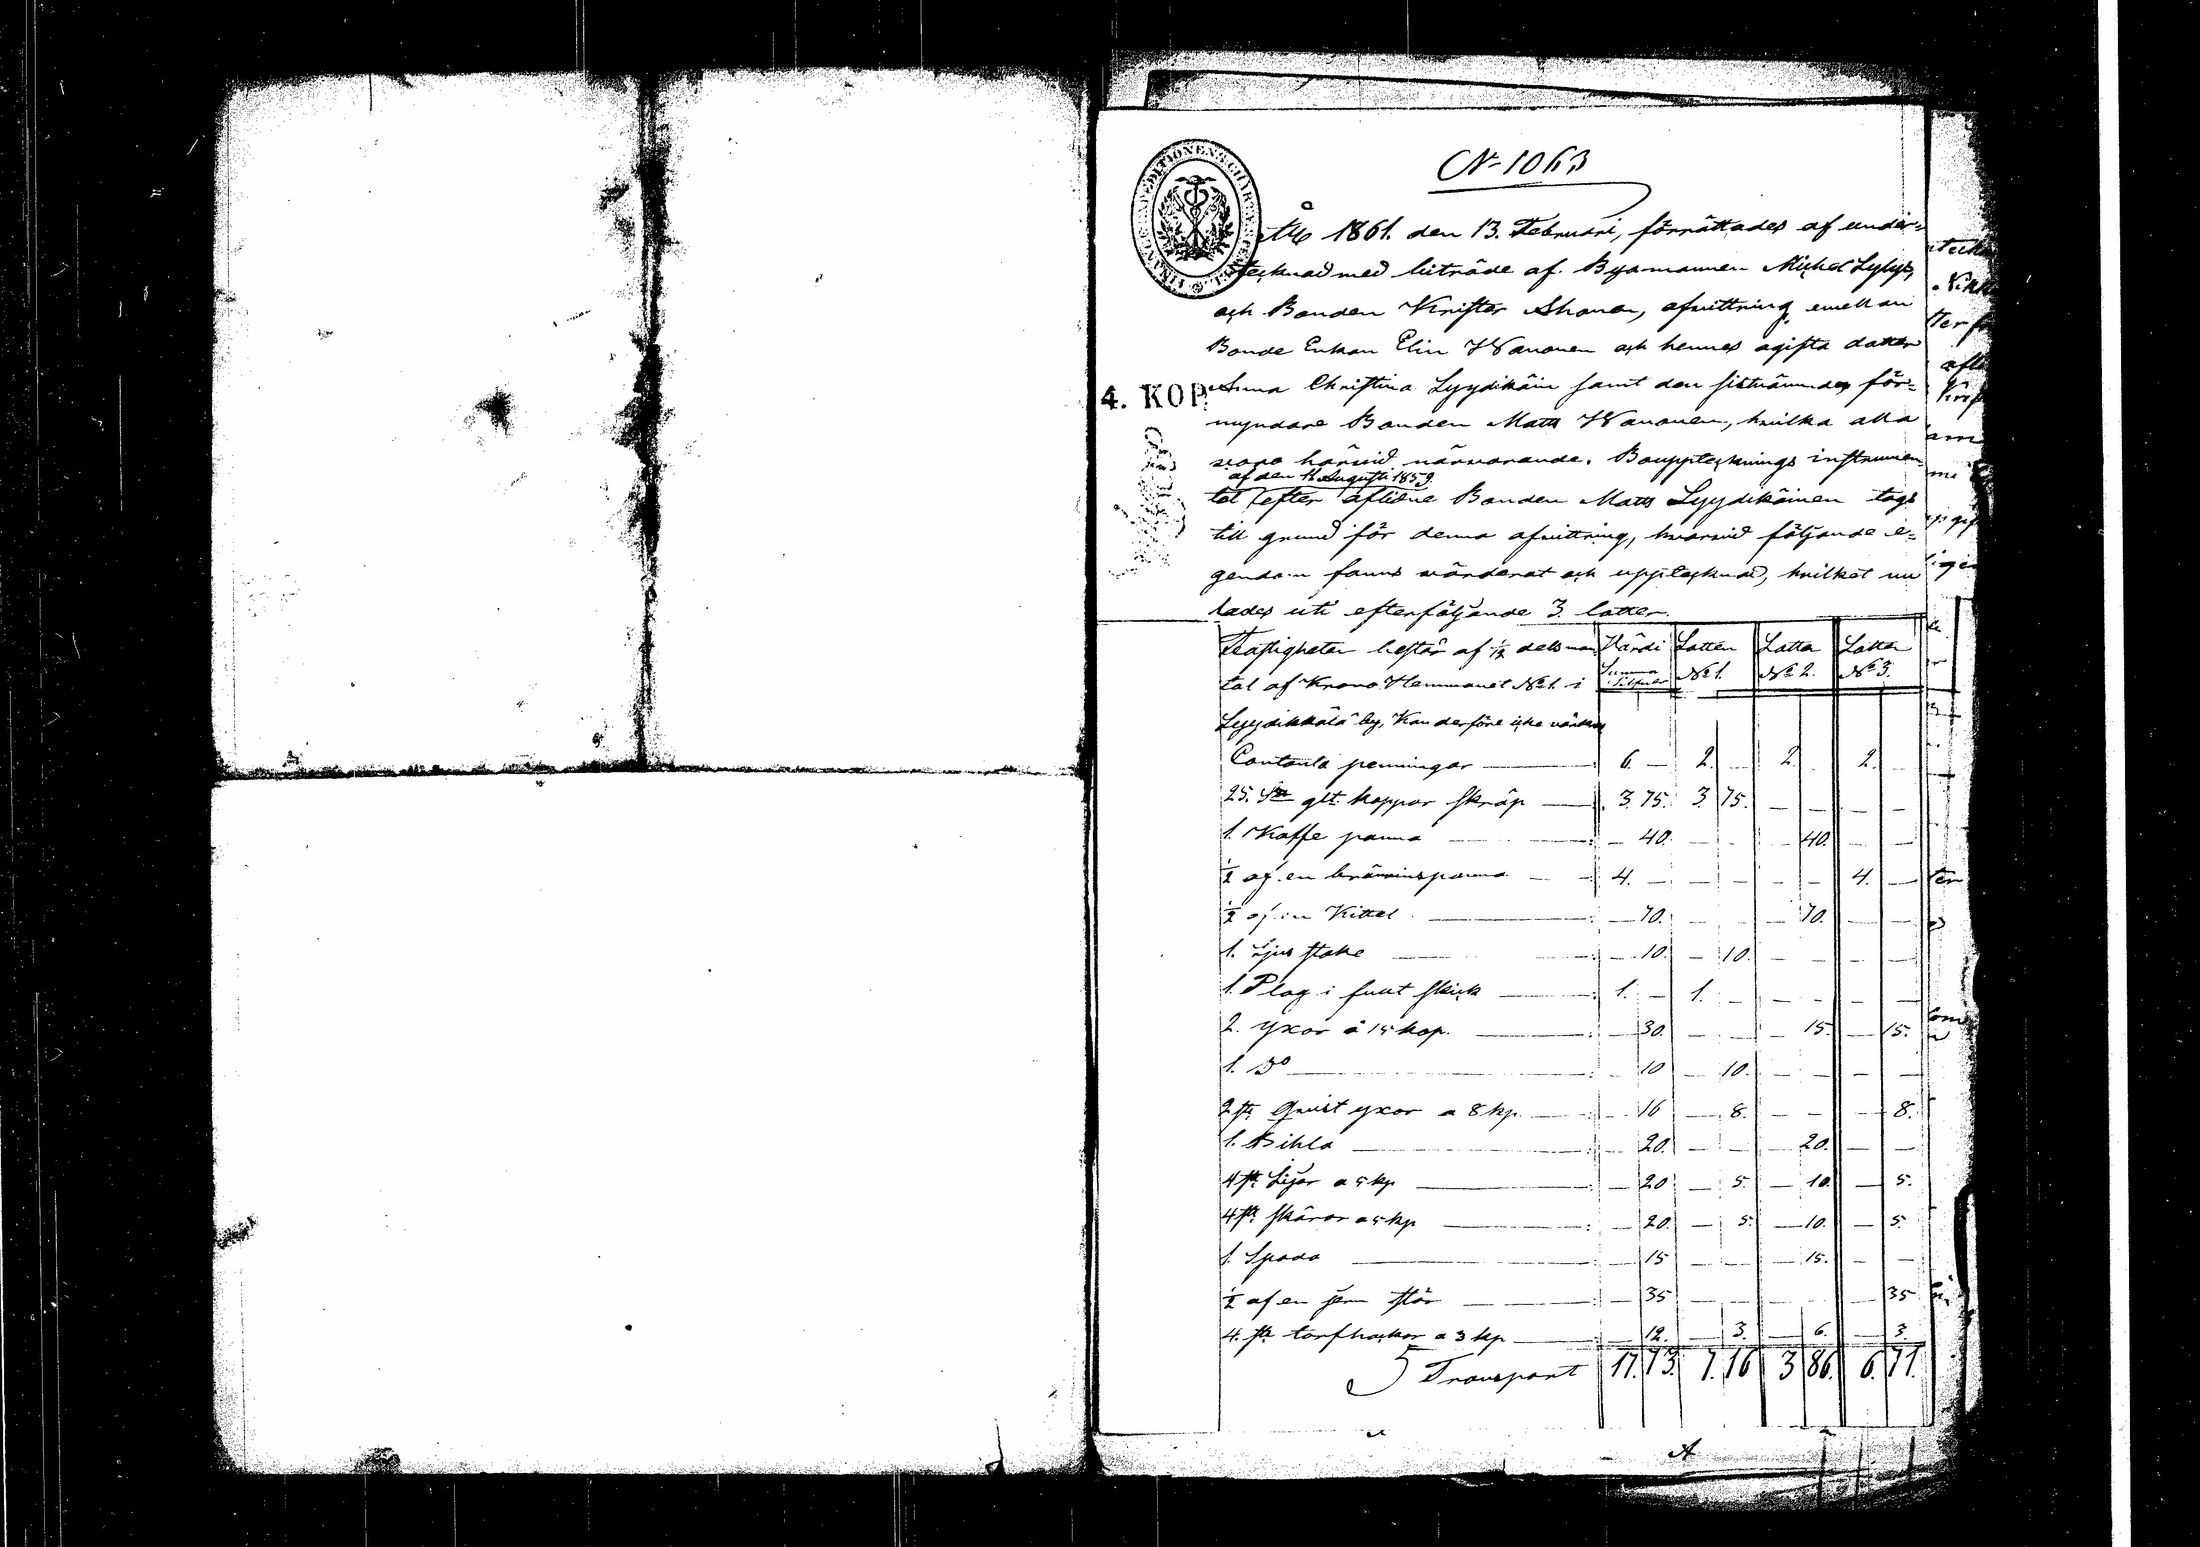 N 1063
År 1861. den 13. Februari, förrättades af under=
tecknad med biträde af Byamannen Michel Lylys,
och Bonden Krister Ahonen, afvittring emellan
Bonde Enkan Elin Wanonen och hennes ogifta dotter
4. KOP.
Anna Christina Lyydikäin samt den sistnämndes för=
myndare Bonden Matts Wanonen, hvilka alla
voro härvid närvarande. Bouppteknings instrumen
af den 11 Augusti 1859.
tet efter aflidne Bonden Matts Lyydikäinen togs
till grund för denna afvittring, hvarvid följande e=
gendom fanns värderat och upptecknad, hvilket nu
lades uti efterföljande 3 lotter.
Fastigheten består af 1/12 dels man Värdi Lotten Lotten Lotten
tal af Krono Hemmanet No 1. i Summa Silfver No 1. No 2. No 3.
Lyydikkälä by, Kan derföre icke värderas
Contanta penningar — 6. — 2. — 2. 2. —
25. glt. koppar skräp — 3. 75. 3 75. — — — —
1. Kaffe panna — — 40. — — 40. — —
1/2 af en bränvinspanna — 4. — — — — — 4. —
1/2 af en Kittel — — 70. — — — 70. — —
1. Ljus stake — — 10. — 10. — — — —
1. Plog i fullt skick — 1. — 1. — — — — —
2. yxor à 15 kop. — — 30. — — 15. — 15.
1. Do — 10 — 10. — — — —
2 st. qvist yxor a 8 kp. — 16 — 8. — — — 8.
1. Bihla — 20. — — — 20. — —
4 st. Lijor a 5 kp — — 20 — 5. — 10. — 5.
4 st. skäror a 5 kp — — 20. — 5. — 10. — 5.
1. Spada — — 15 — — — 15. — —
1/2 af en jern stör — — 35 — — — — — 35
4. st. torfhackor a 3 kp — — 12. — 3. — 6. — 3.
Transport 17. 73. 7. 16 3 86. 6. 71.